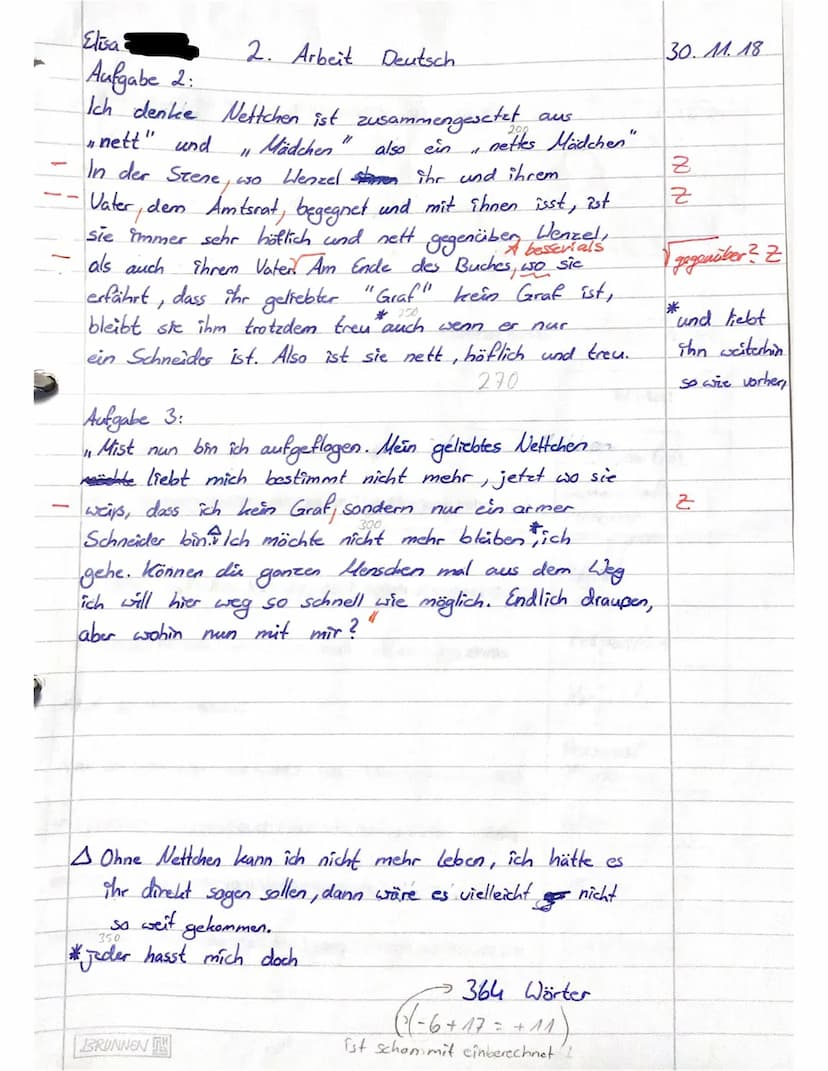 Elisa 2. Arbeit Deutsch 30.11.18
Aufgabe 2:
Ich denke Nettchen ist zusammengesetzt aus
200
„nett" und „Mädchen" also ein „nettes Mädchen"
– In der Szene, wo Wenzel ihr und ihrem Z
– – Vater, dem Amtsrat, begegnet und mit ihnen isst, ist Z
sie immer sehr höflich und nett gegenüber Wenzel,
besser: als
– als auch ihrem Vater. Am Ende des Buches, wo sie √ gegenüber? Z
erfährt, dass ihr geliebter "Graf" kein Graf ist,
250
bleibt sie ihm trotzdem treu * auch wenn er nur * und liebt
ein Schneider ist. Also ist sie nett, höflich und treu. ihn weiterhin
270 so wie vorher,
Aufgabe 3:
„Mist nun bin ich aufgeflogen. Mein geliebtes Nettchen
möchte liebt mich bestimmt nicht mehr, jetzt wo sie
– weiß, dass ich kein Graf, sondern nur ein armer Z
300
Schneider bin. Δ Ich möchte nicht mehr bleiben *, ich
gehe. Können die ganzen Menschen mal aus dem Weg
ich will hier weg so schnell wie möglich. Endlich draußen,
aber wohin nun mit mir?"
Δ Ohne Nettchen kann ich nicht mehr leben, ich hätte es
ihr direkt sagen sollen, dann wäre es vielleicht nicht
so weit gekommen.
350
* jeder hasst mich doch
→ 364 Wörter
(-6 + 17 = + 11)
ist schon mit einberechnet!
BRUNNEN